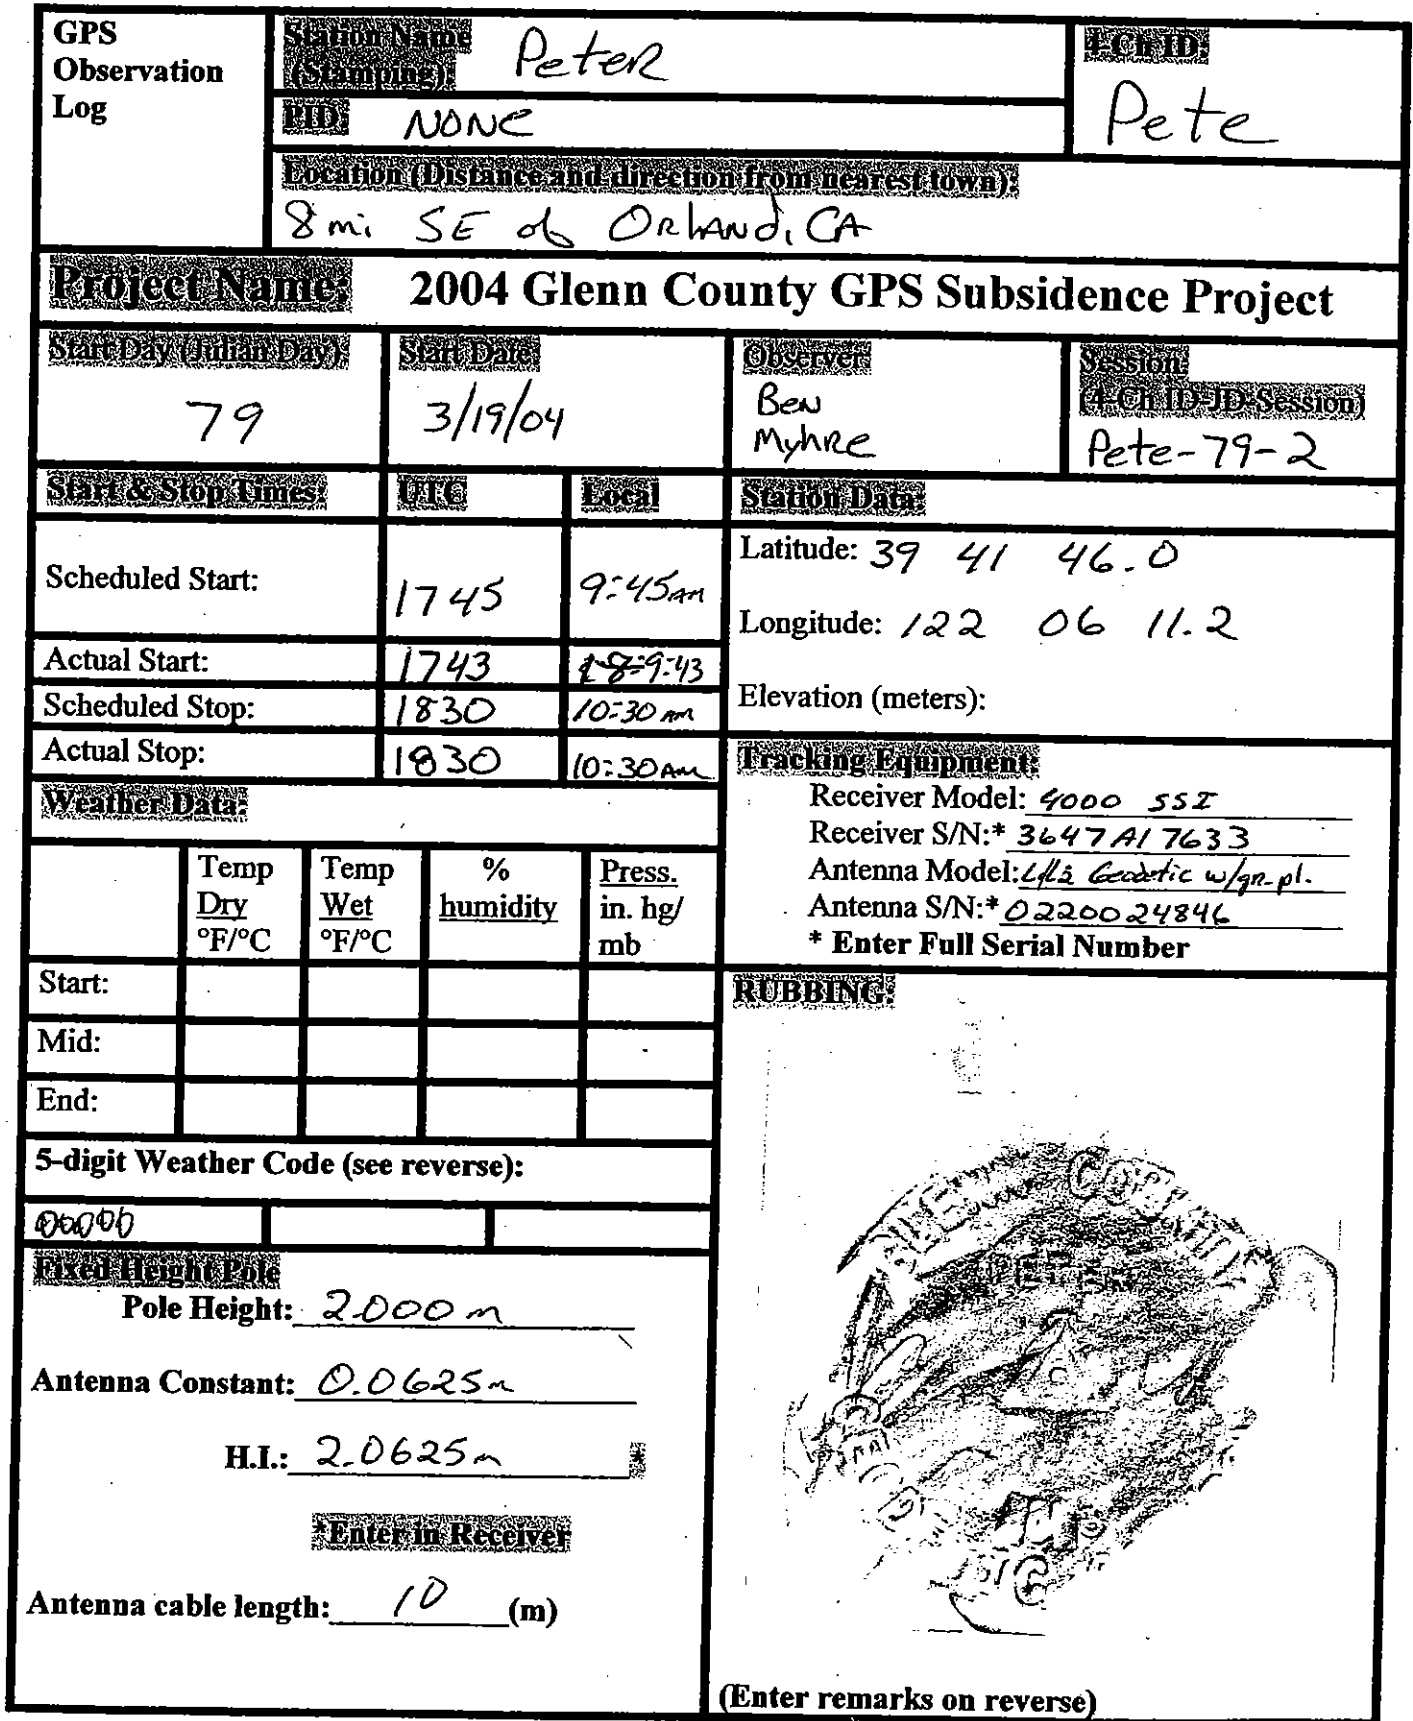 GPS
Observation
Log
Station Name
(Stamping): Peter
PID: NONE
4-Ch ID:
Pete
Location (Distance and direction from nearest town):
8 mi SE of Orland, CA
Project Name: 2004 Glenn County GPS Subsidence Project
Start Day (Julian Day):
79
Start Date:
3/19/04
Observer:
Ben
Myhre
Session:
(4-Ch ID-JD-Session)
Pete-79-2
Start & Stop Times: UTC Local
Scheduled Start: 1745 9:45 AM
Actual Start: 1743 9:43
Scheduled Stop: 1830 10:30 AM
Actual Stop: 1830 10:30 AM
Station Data:
Latitude: 39 41 46.0
Longitude: 122 06 11.2
Elevation (meters):
Tracking Equipment:
Receiver Model: 4000 SSI
Receiver S/N:* 3647A17633
Antenna Model: L1/L2 Geodetic w/gr.pl.
Antenna S/N:* 0220024846
* Enter Full Serial Number
Weather Data:
Temp
Dry
°F/°C
Temp
Wet
°F/°C
%
humidity
Press.
in. hg/
mb
Start:
Mid:
End:
5-digit Weather Code (see reverse):
00000
Fixed Height Pole
Pole Height: 2.000 m
Antenna Constant: 0.0625 m
H.I.: 2.0625 m *
*Enter in Receiver
Antenna cable length: 10 (m)
RUBBING:
GLENN COUNTY
PETER
(Enter remarks on reverse)